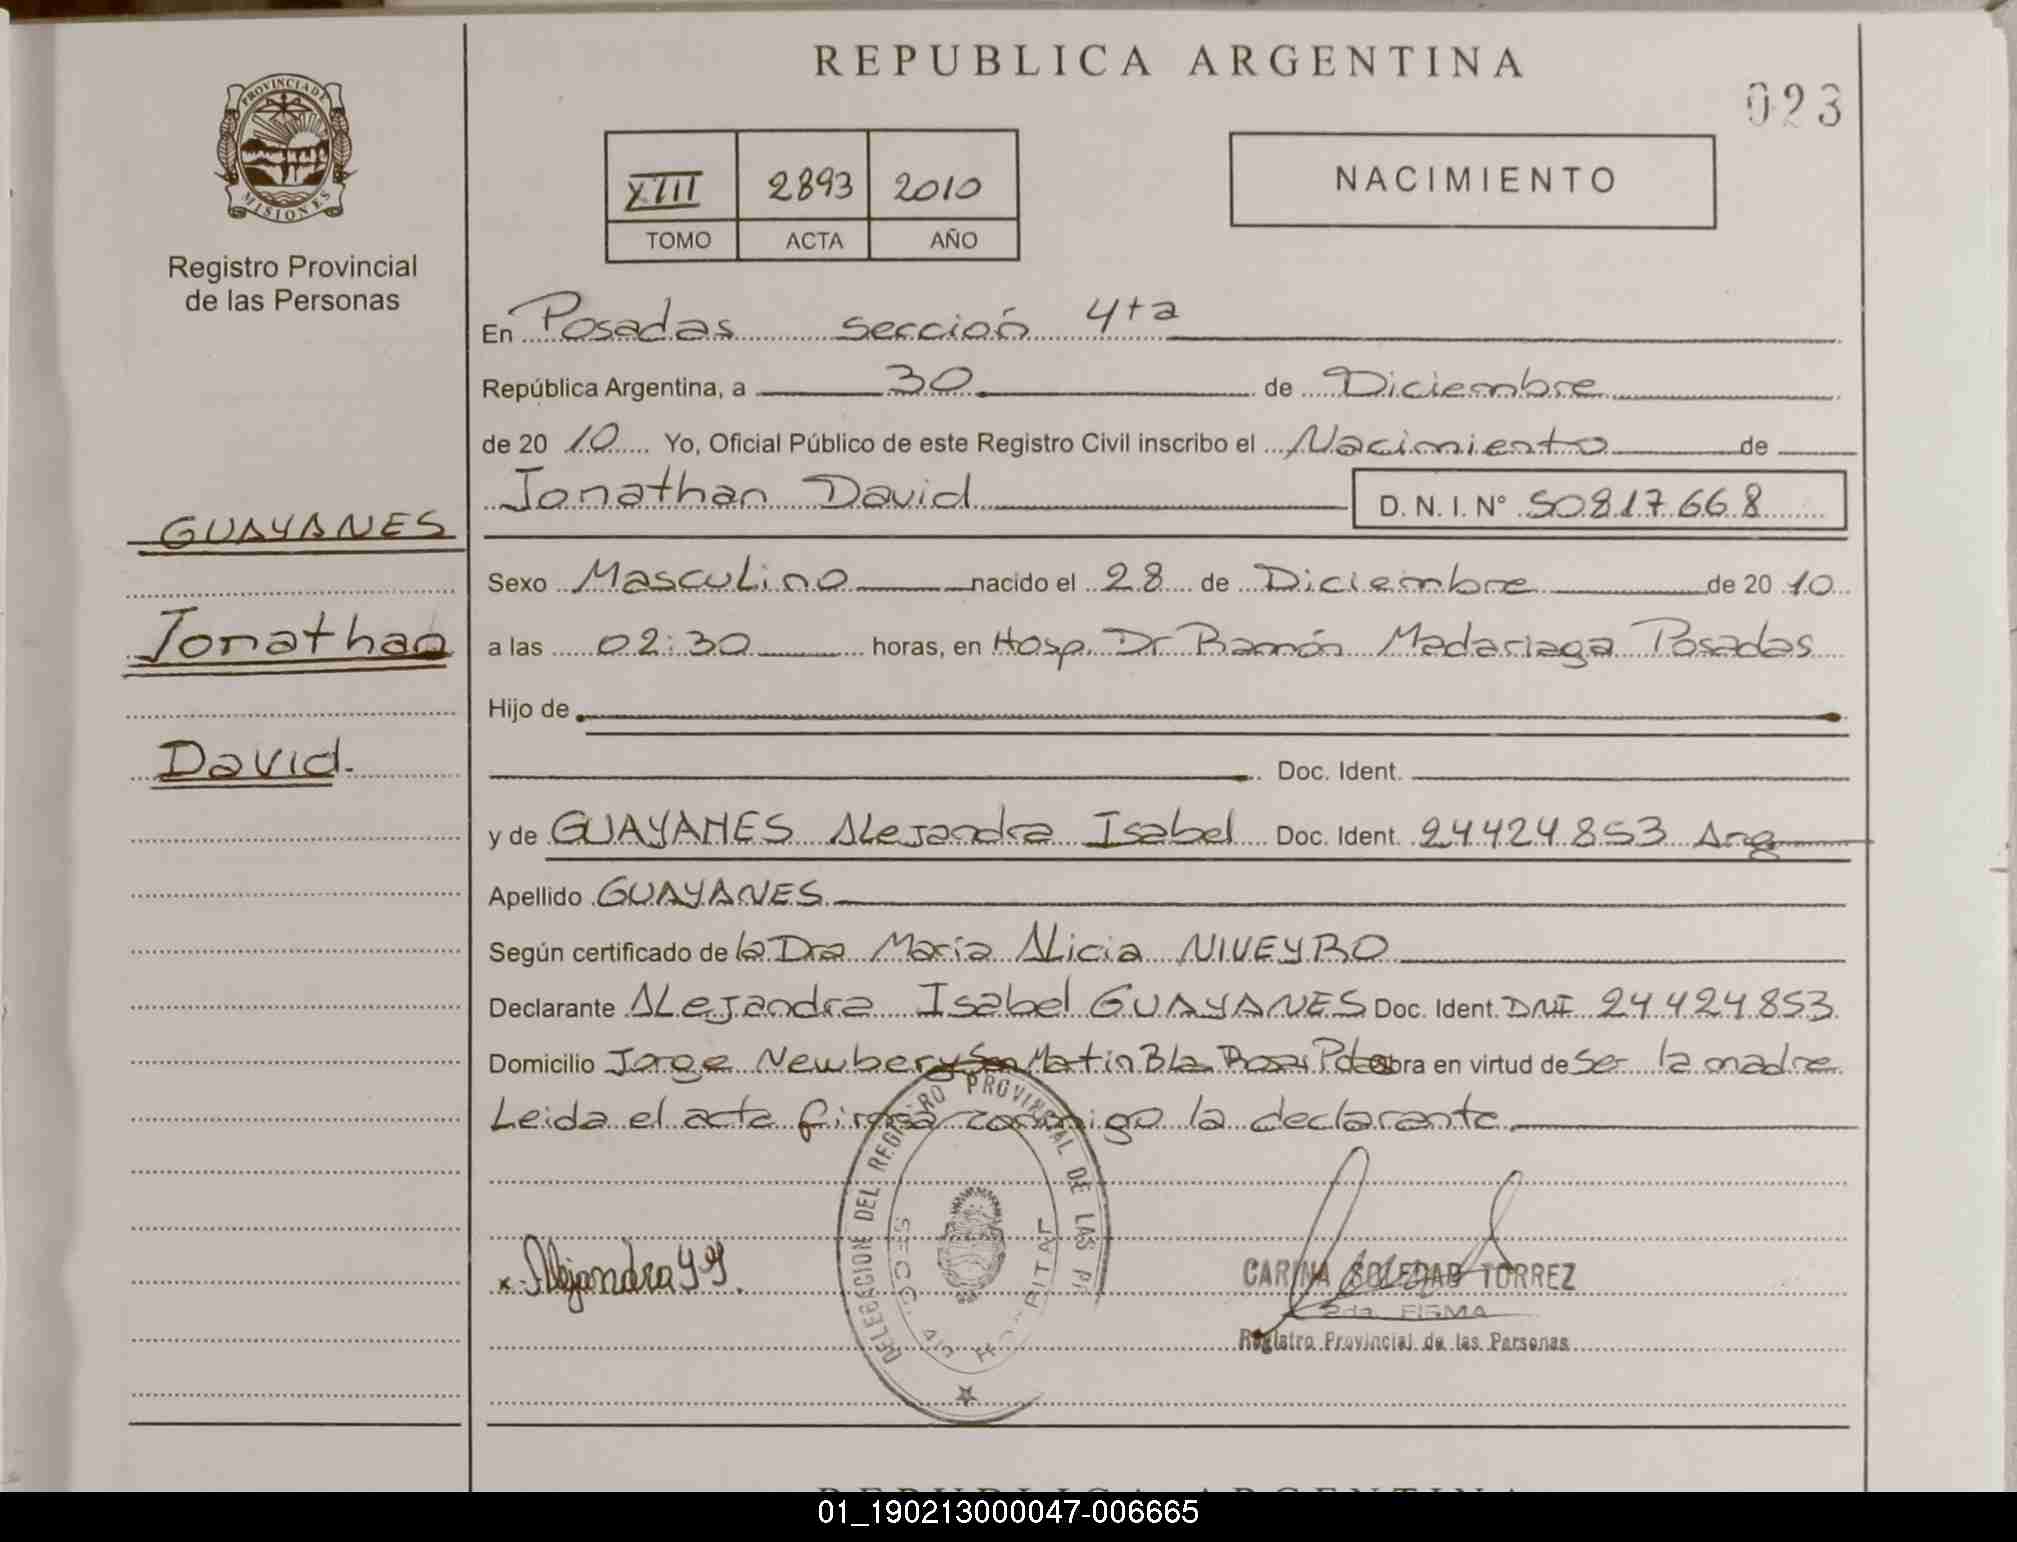 REPUBLICA ARGENTINA
023
PROVINCIA DE
MISIONES
Registro Provincial
de las Personas
XIII 2893 2010
TOMO ACTA AÑO
NACIMIENTO
En Posadas sección 4ta
República Argentina, a 30 de Diciembre
de 20 10 Yo, Oficial Público de este Registro Civil inscribo el Nacimiento de
Jonathan David D. N. I. N° 50817668
GUAYANES
Jonathan
David.
Sexo Masculino nacido el 28 de Diciembre de 20 10
a las 02:30 horas, en Hosp. Dr Ramón Madariaga Posadas
Hijo de
Doc. Ident.
y de GUAYANES Alejandra Isabel Doc. Ident. 24424853 Arg
Apellido GUAYANES
Según certificado de la Dra María Alicia NIVEYRO
Declarante Alejandra Isabel GUAYANES Doc. Ident. DNI 24424853
Domicilio Jorge Newbery San Matin B La Rosa Pdas obra en virtud de ser la madre
Leida el acta firma conmigo la declarante
DELEGACION DEL REGISTRO PROVINCIAL DE LAS
SECC. 4ta HOSPITAL
x Alejandra
CARINA SOLEDAD TORREZ
2da. FIRMA
Registro Provincial de las Personas
REPUBLICA ARGENTINA
01_190213000047-006665